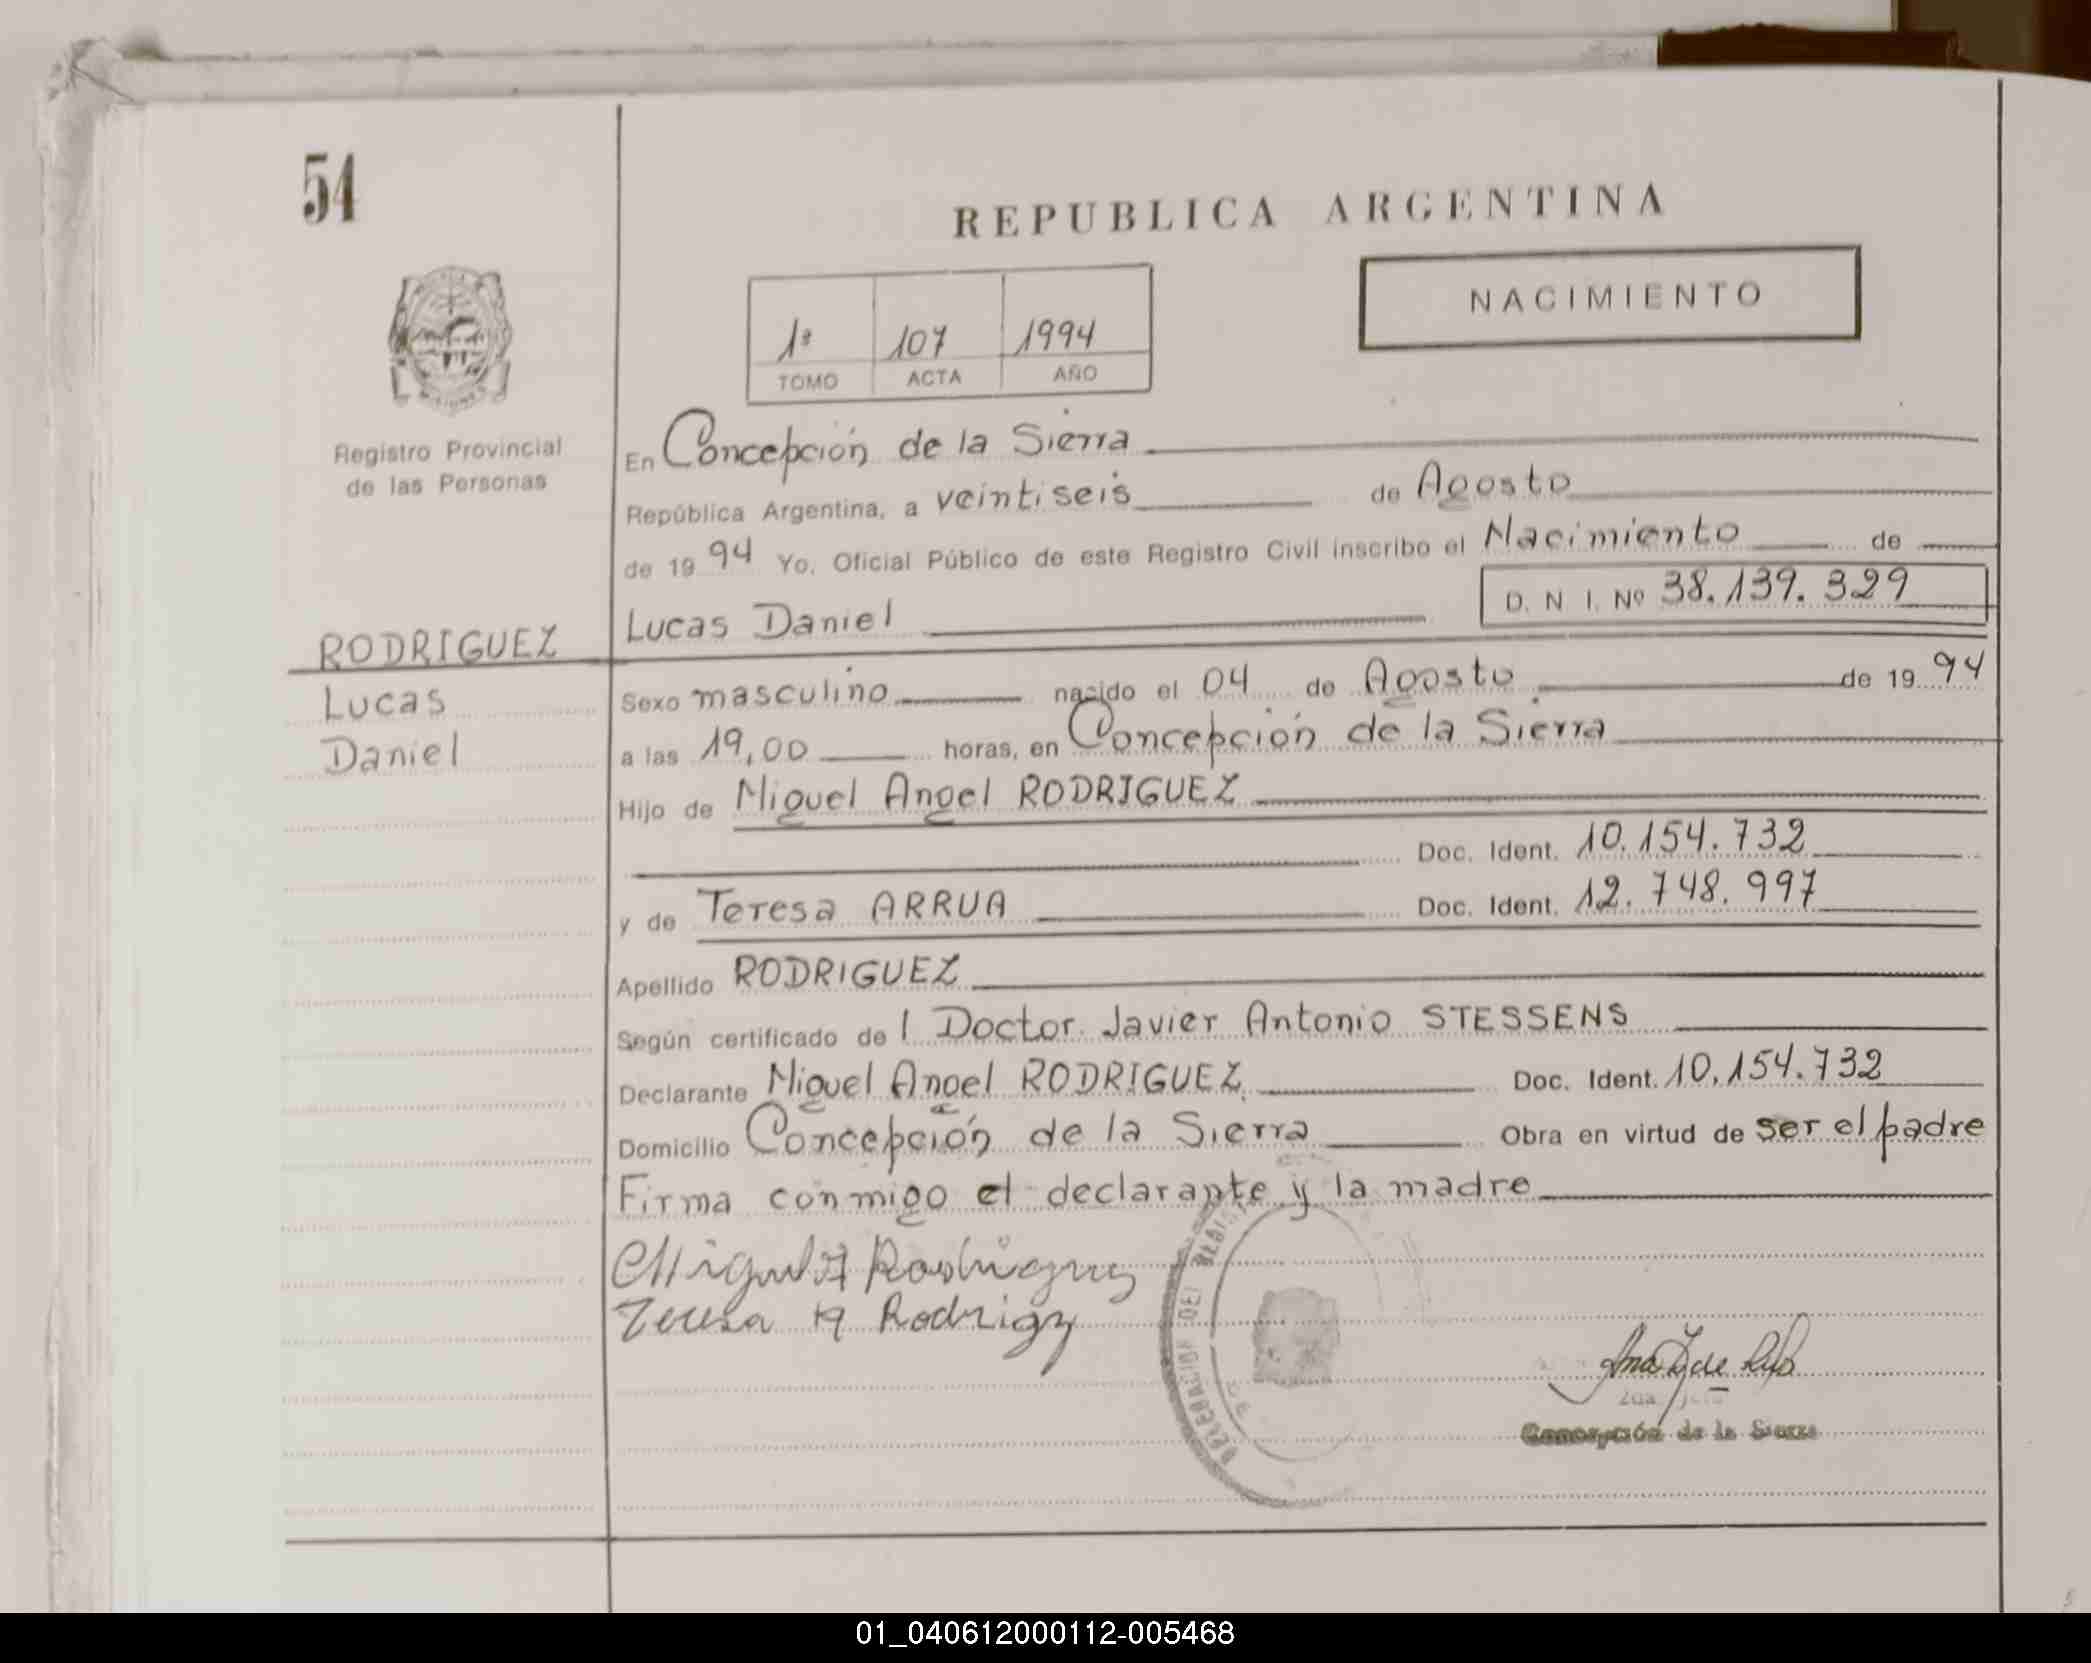 54
REPUBLICA ARGENTINA
NACIMIENTO
1º 107 1994
TOMO ACTA AÑO
Registro Provincial
de las Personas
En Concepción de la Sierra
República Argentina, a veintiseis de Agosto
de 19 94 Yo, Oficial Público de este Registro Civil inscribo el Nacimiento de
Lucas Daniel D. N I. Nº 38.139.329
RODRIGUEZ
Lucas
Daniel
Sexo masculino nacido el 04 de Agosto de 19 94
a las 19,00 horas, en Concepción de la Sierra
Hijo de Miguel Angel RODRIGUEZ
Doc. Ident. 10.154.732
y de Teresa ARRUA Doc. Ident. 12.748.997
Apellido RODRIGUEZ
Según certificado de l Doctor Javier Antonio STESSENS
Declarante Miguel Angel RODRIGUEZ Doc. Ident. 10.154.732
Domicilio Concepción de la Sierra Obra en virtud de ser el padre
Firma conmigo el declarante y la madre
Teresa
Concepción de la Sierra
01_040612000112-005468